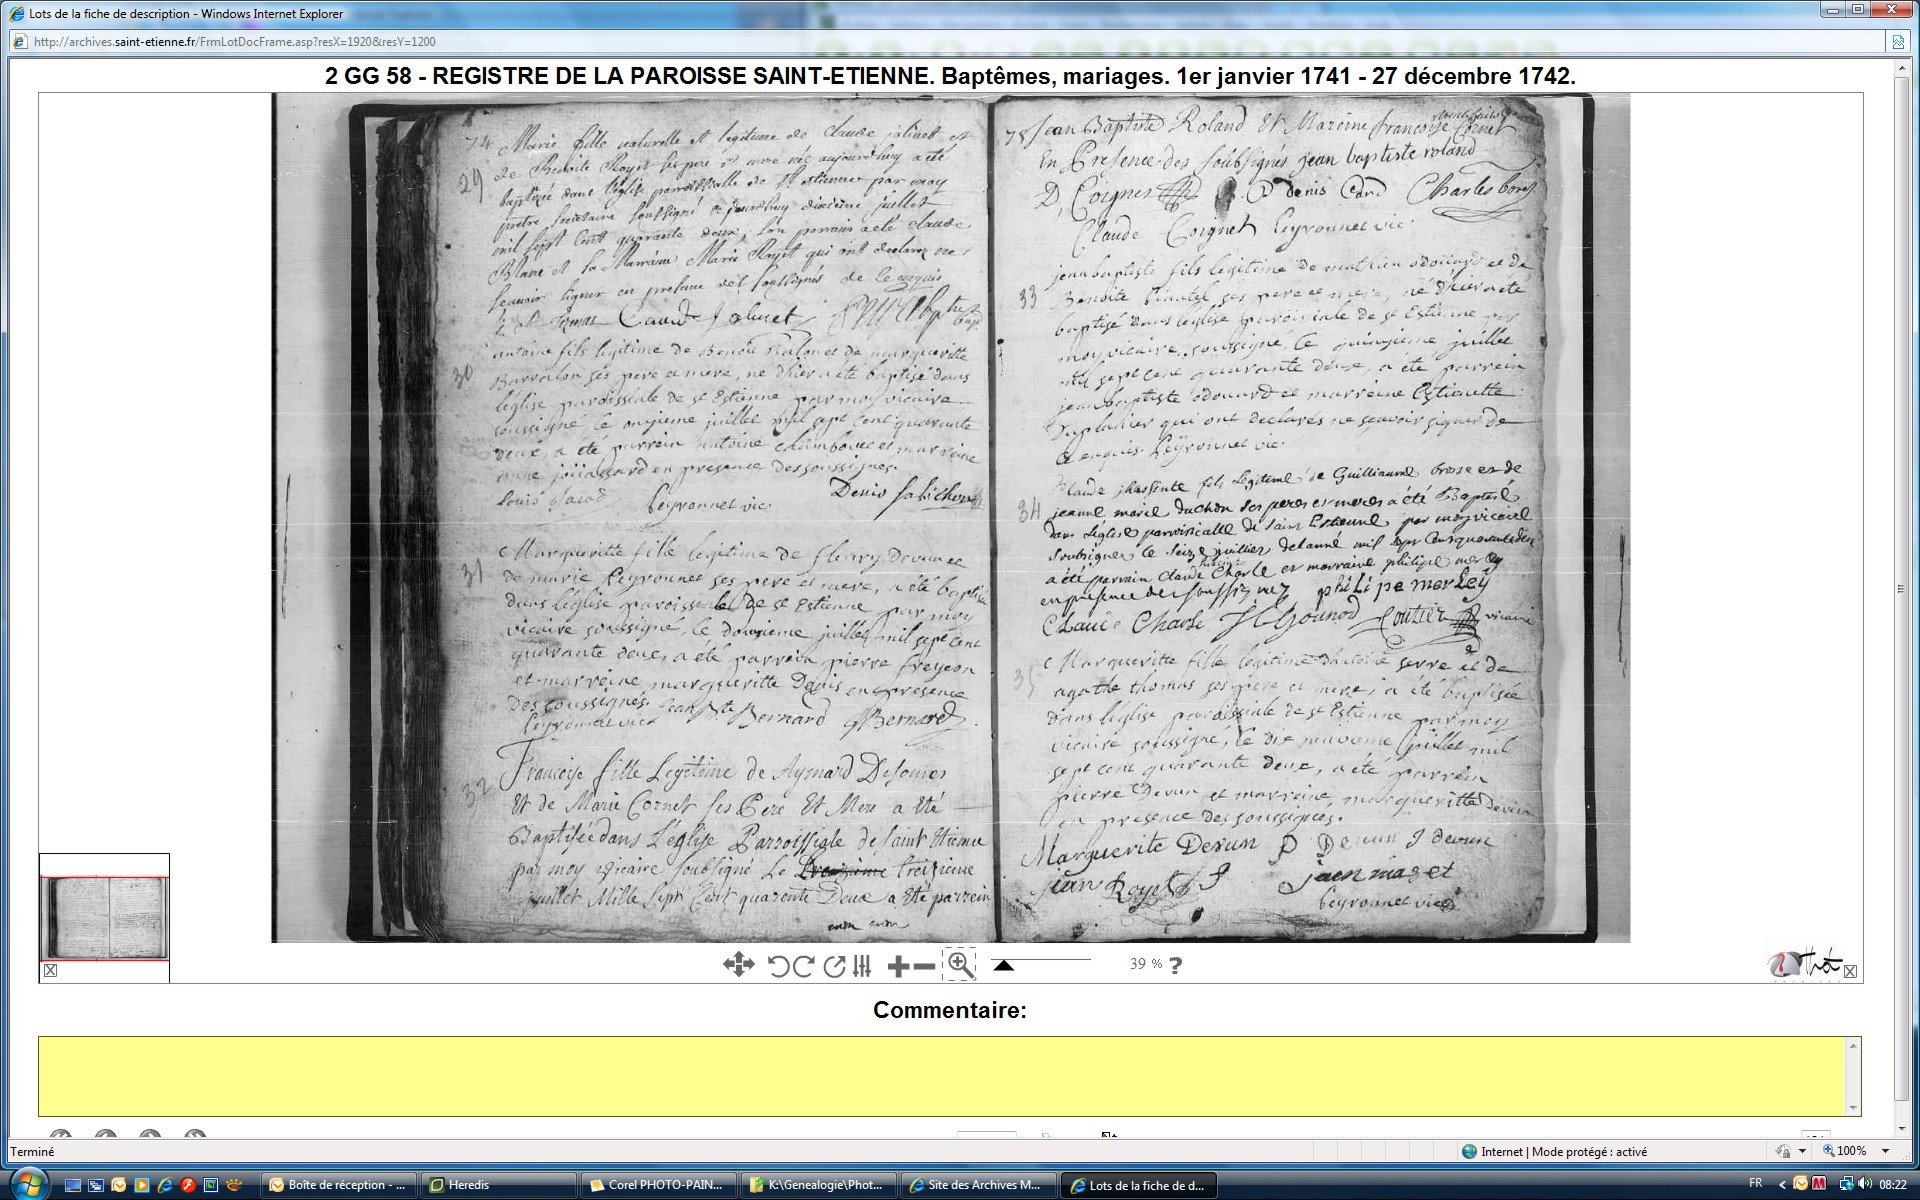 Lots de la fiche de description - Windows Internet Explorer
http://archives.saint-etienne.fr/FrmLotDocFrame.asp?resX=1920&resY=1200
2 GG 58 - REGISTRE DE LA PAROISSE SAINT-ETIENNE. Baptêmes, mariages. 1er janvier 1741 - 27 décembre 1742.
74
29
Marie fille naturelle et legitime de claude jolivet et
de Benoite Royet ses pere et mere née aujourdhuy a été
baptisée dans l'eglise parroissialle de St etienne par moy
pretre societaire soussigné ce jourdhuy dixieme juillet
mil sept cent quarante deux, son parrain a été claude
Blanc et la Marraine Marie Royet qui ont declaré ne
scavoir signer en presence des soussignés de ce enquis
Claude Jolivet
30
antoine fils legitime de Benoit et de margueritte
Barralon ses pere et mere, né d'hier a été baptisé dans
l'eglise paroissiale de st Estienne par moy vicaire
soussigné, le onzieme juillet mil sept cent quarante
deux, a été parrein antoine et marreine
anne en presence des soussignes.
Louis
Peyronnet vic.
Denis
31
Marguerite fille legitime de fleury Devun et
de marie Peyronnet ses pere et mere, a été baptisée
dans l'eglise paroissiale de st Estienne par moy
vicaire soussigné, le douzieme juillet mil sept cent
quarante deux, a été parrein pierre
et marreine marguerite Denis en presence
des soussignés. Jean Bte Bernard Bernard
Peyronnet vic.
32
Francoise fille Legitime de Aymard
Et de Marie Cornet ses Pere Et Mere a Eté
Baptisée dans L'Eglise Parroissiale de Saint Etienne
par moy vicaire soubsigné Le treizieme
juillet Mille Sept Cent quarente Deux a Eté parrein
75
Jean Baptiste Roland Et Mareine francoise Cornet
En Presence des soubsignés jean baptiste roland
D. Coignet P denis Card Charles bory
Claude Coignet Peyronnet vic.
33
jean baptiste fils legitime de mathieu odouard et de
Benoite ses pere et mere, né d'hier a été
baptisé dans l'eglise paroissiale de st Estienne par
moy vicaire soussigné, le quinzieme juillet
mil sept cent quarante deux, a été parrein
jean baptiste odouard et marreine Estiennette
Duplanier qui ont declarés ne scavoir signer de
ce enquis. Peyronnet vic.
34
Claude fils Legitime de Guilliaume brosse et de
jeanne marie duchon ses peres et meres a été Baptisé
dans L'église parroisialle de saint Estienne par moy vicaire
soubsigner le seize juillier de lanné mil sept cent quarante deux
a été parrain Claude Charle et marraine philipe merley
en presence des soussignez philipe merley
Claude Charle Goutier vicaire
35
Marguerite fille legitime d'antoine serre et de
agathe thomas ses pere et mere, a été baptisée
dans l'eglise paroissiale de st Estienne par moy
vicaire soussigné, le dix neuvieme juillet mil
sept cent quarante deux, a été parrein
pierre Devun et marreine, marguerite Devun
en presence des soussignés.
Marguerite Devun P Devun J devun
jean Royet
Peyronnet vic.
39 %
?
Commentaire:
Terminé
Internet | Mode protégé : activé
100%
Boîte de réception - ...
Heredis
Corel PHOTO-PAIN...
K:\Genealogie\Phot...
Site des Archives M...
Lots de la fiche de d...
FR
08:22